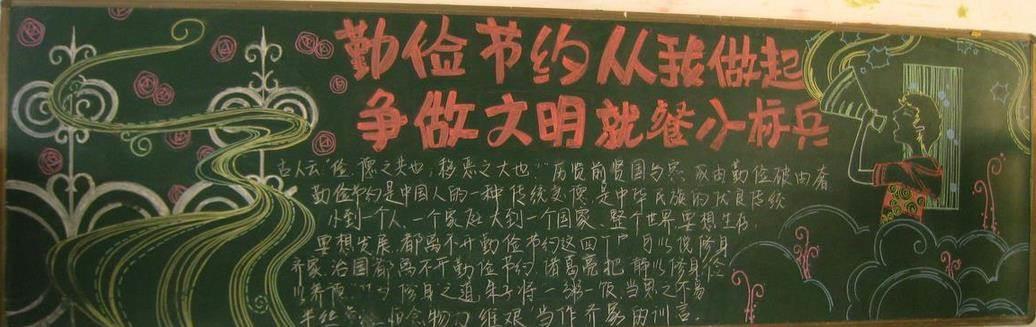 勤俭节约从我做起
争做文明就餐小标兵
古人云"俭、德之共也,移恶之大也"历览前贤国与家 由勤俭破由奢
勤俭节约是中国人的一种传统美德,是中华民族的优良传统
小到一个人、一个家庭大到一个国家、整个世界要想生存
要想发展都离不开勤俭节约这四个 可以说修身
齐家治国都离不开勤俭节约,诸葛亮把"静以修身俭
以养德" 修身之道,朱子将"一粥一饭,当思之不易
半丝 恒念物力维艰"当作齐家的训言。